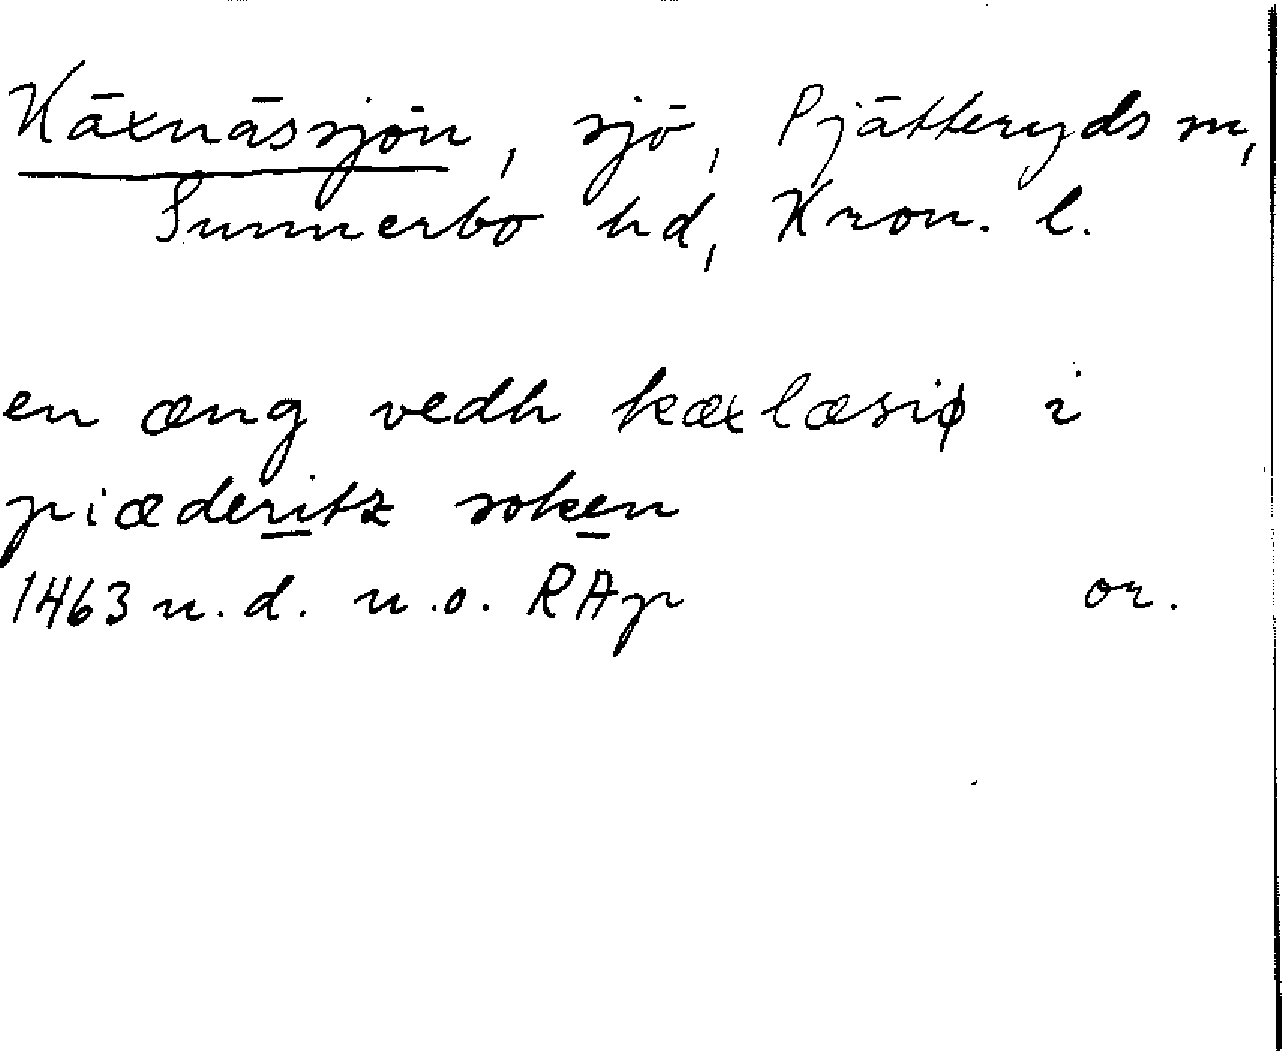 Käxnässjön, sjö, Pjätteryds sn,
Sunnerbo hd, Kron. l.
en æng vedh kæxlæsiø i
piæderitz soken
1463 u.d. u.o. RAp or.